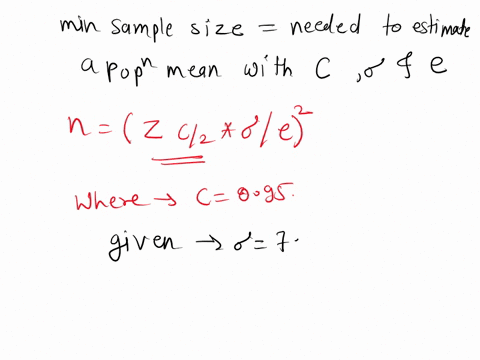 min sample size = needed to estimate
a popⁿ mean with C, σ & e
n = (Z c/2 * σ/e)²
Where → C = 0.95.
given → σ = 7.